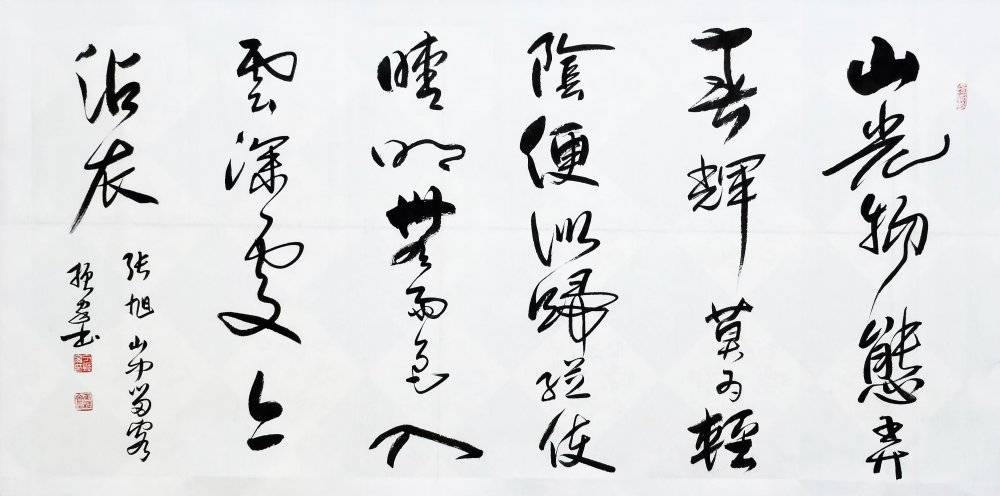 山光物態弄
春輝莫为輕
陰便擬歸縱使
晴明無雨色入
雲深處亦
沾衣
张旭山中留客
书